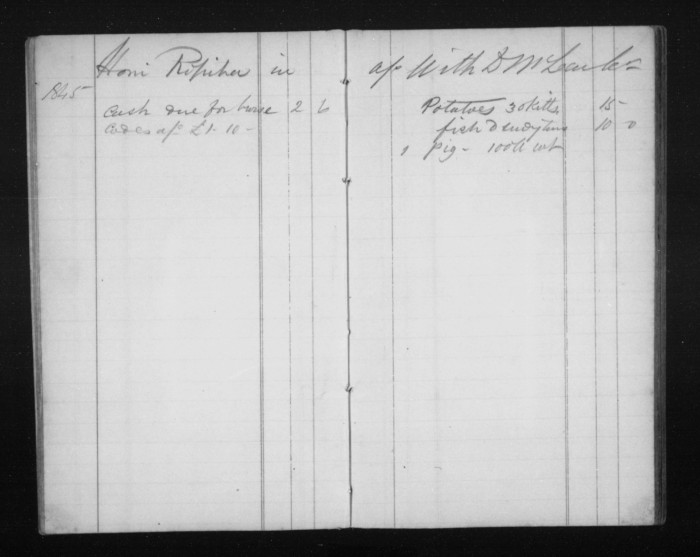 Honi Ripiha in a/c With D McLean
1845
cash due for horse 2 6
a/c £1-10-
Potatoes 30 kitts 15-
fish D 10-0
1 pig- 100 lb wt